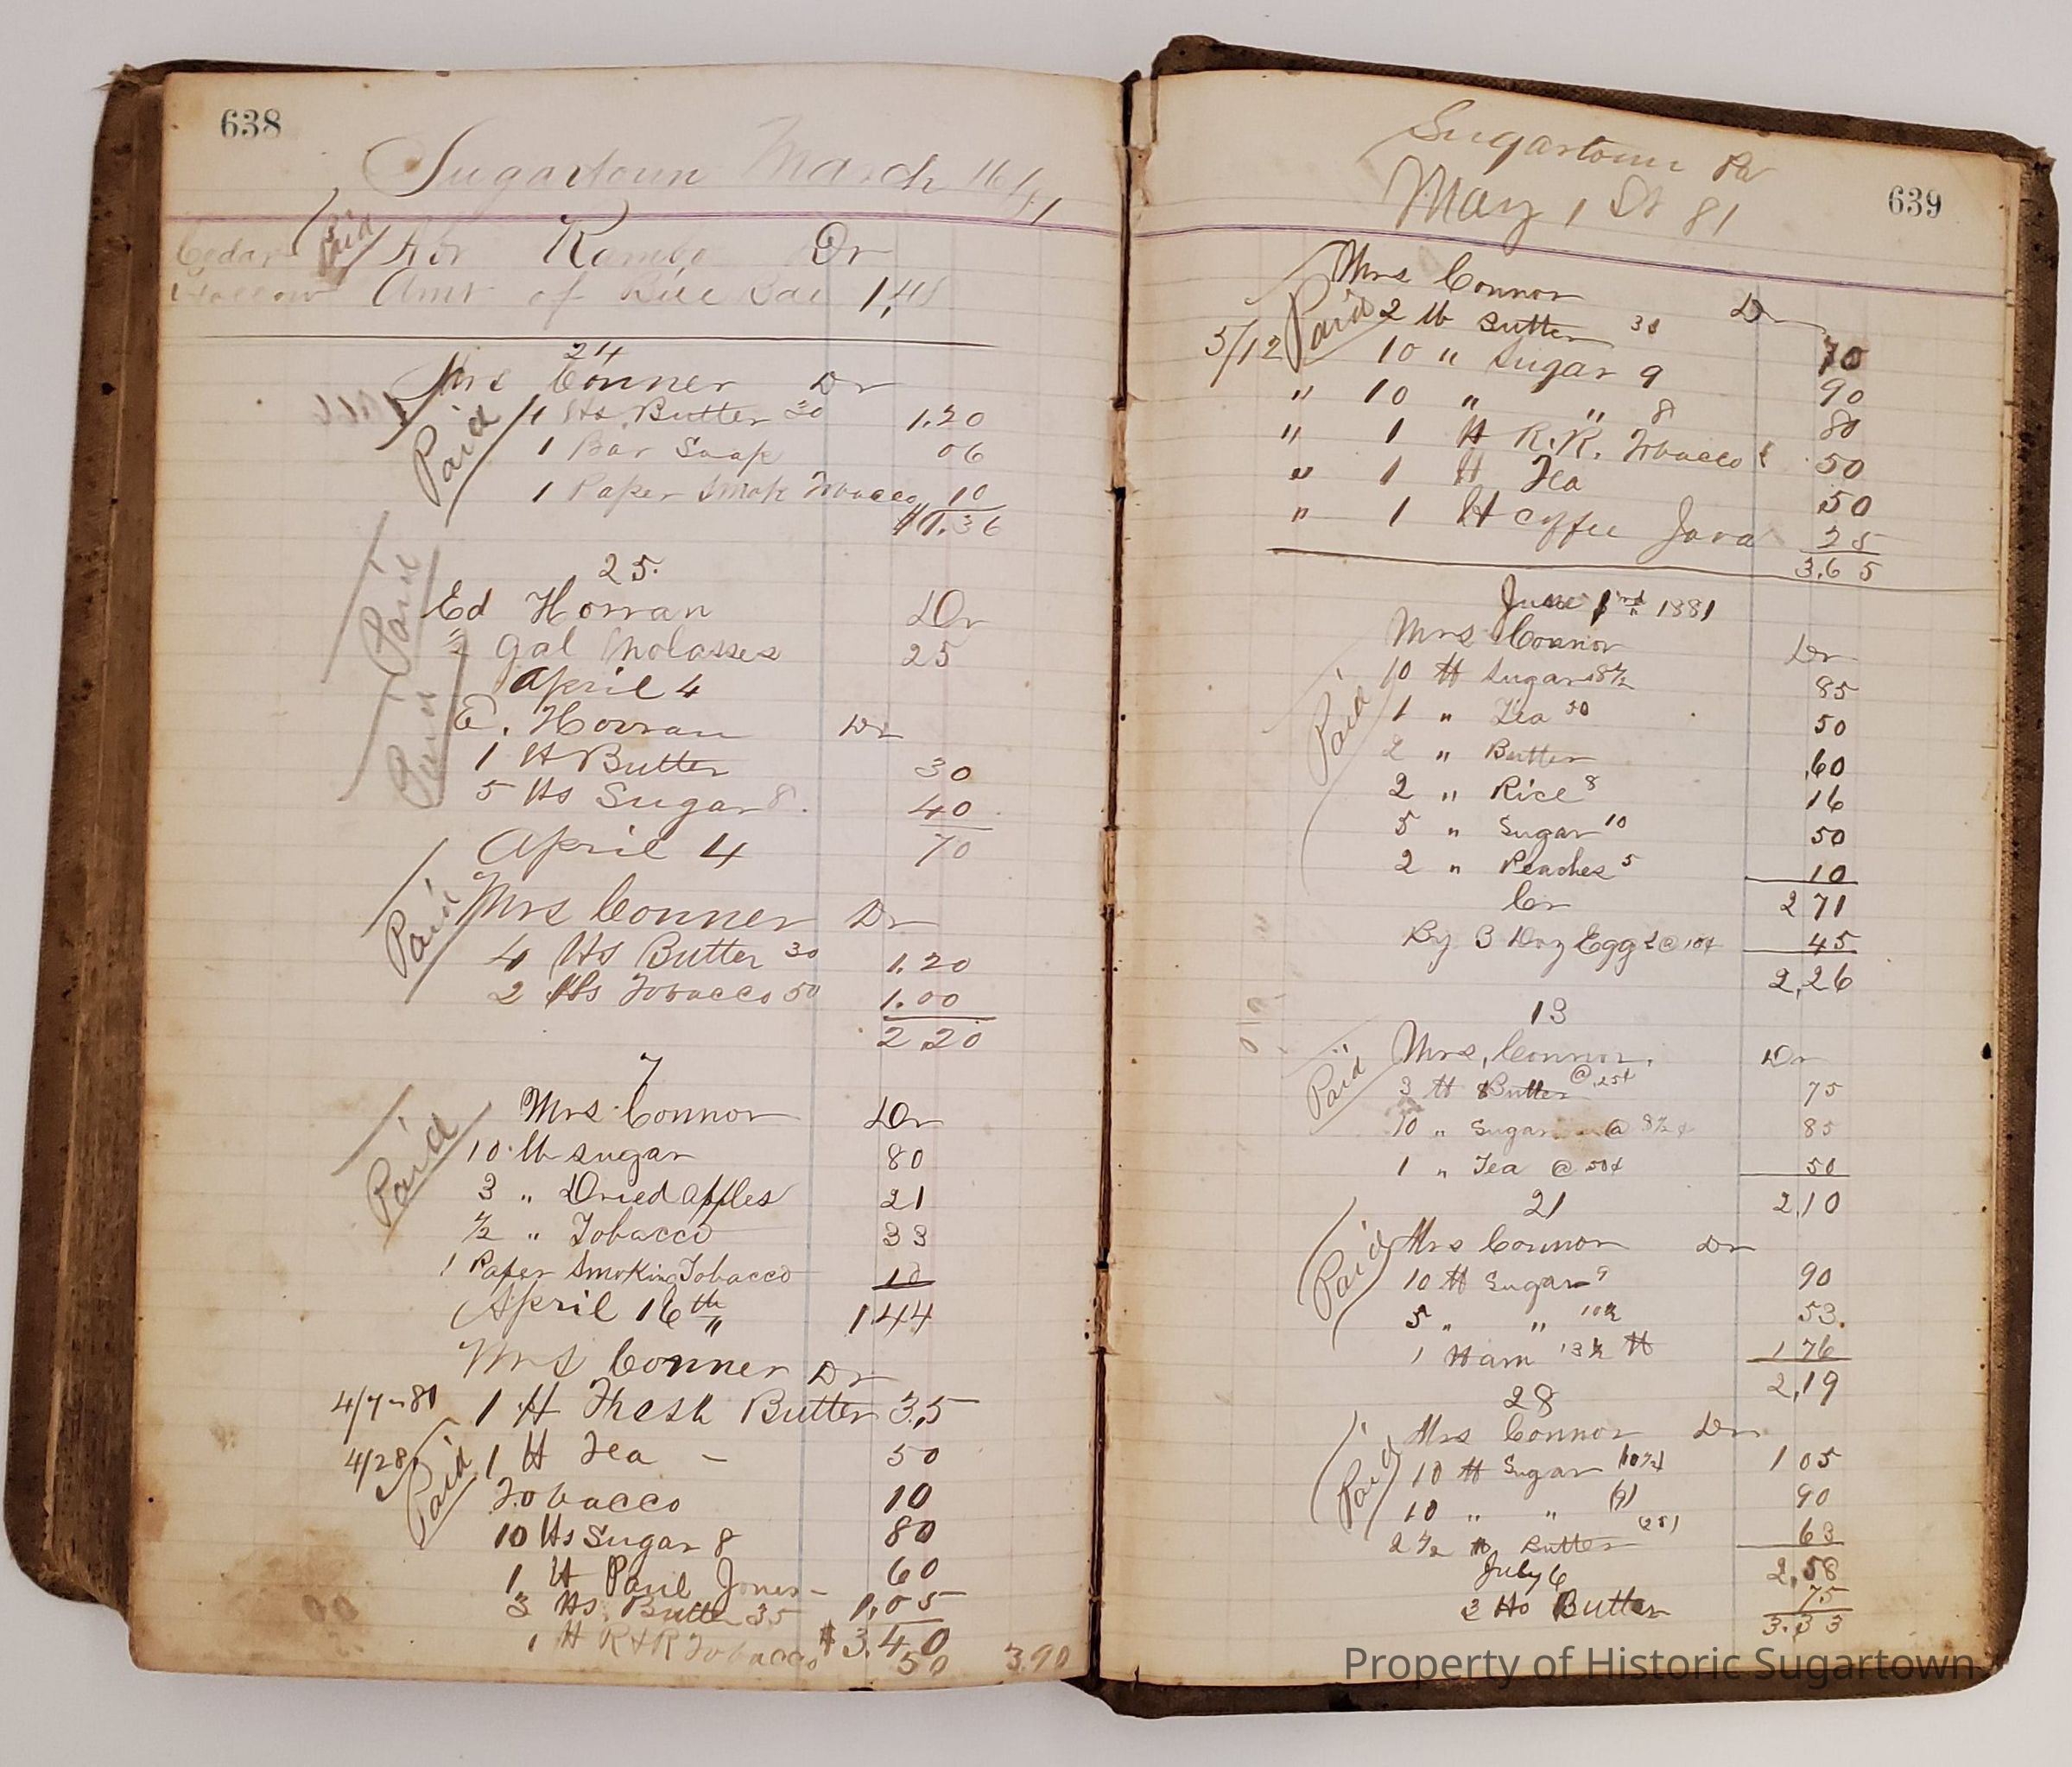 638
Sugartown March 16/81
Cedar Hollow Paid Rambo Dr
Amt of Bill Bal 1,41
24
Mrs Conner Dr
Paid 4 lbs Butter 30 1.20
1 Bar Soap 06
1 Paper Smok Tobacco 10
$1.36
25.
Ed Horran Dr
Paid gal Molasses 25
April 4
E. Horran Dr
Paid 1 lb Butter 30
5 lbs Sugar 8. 40
70
April 4
Mrs Conner Dr
Paid 4 lbs Butter 30 1.20
2 lbs Tobacco 50 1.00
2.20
7
Mrs Connor Dr
Paid 10 lb sugar 80
3 " Dried apples 21
1/2 " Tobacco 33
1 Paper Smoking Tobacco 10
1.44
April 16th
Mrs Conner Dr
4/7-81 1 lb Fresh Butter 35
4/28 Paid 1 lb Tea - 50
Tobacco 10
10 lbs Sugar 8 80
1 lb Paul Jones - 60
3 lbs Butter 35 1.05
$3.40
1 lb R & R Tobacco 50 3.90
Sugartown Pa
May 1 St 81
639
Mrs Connor Dr
Paid 2 lb Butter 70
5/12 10 " Sugar 9 90
" 10 " " 8 80
" 1 lb R.R. Tobacco 50
" 1 lb Tea 50
" 1 lb coffee Java 25
3.65
June 1881
Mrs Connor Dr
Paid 10 lb Sugar 8 1/2 85
1 " Tea 50 50
2 " Butter 60
2 " Rice 8 16
5 " Sugar 10 50
2 " Peaches 5 10
Cr 2 71
By 3 Doz Eggs @ 15¢ 45
2,26
13
Mrs, Connor. Dr
Paid 3 lb Butter @ 25¢ 75
10 " Sugar @ 8 1/2 ¢ 85
1 " Tea @ 50¢ 50
2,10
21
Mrs Connor Dr
Paid 10 lb Sugar 9 90
5 " " 10 1/2 53.
1 Ham 13 1/2 lb 1 76
2,19
28
Mrs Connor Dr
Paid 10 lb Sugar (10 1/2) 1 05
10 " " (9) 90
2 1/2 lb Butter (25) 63
2,58
July 6
3 lbs Butter 75
3.33
Property of Historic Sugartown